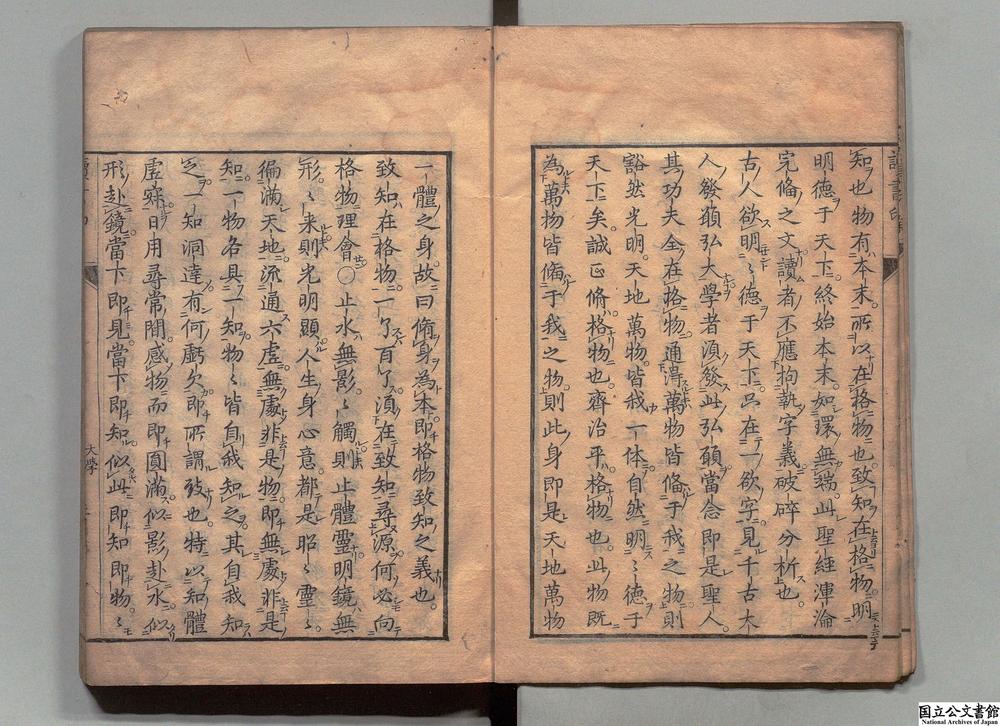 知也物有本末所以在格物也致知在格物明
明德于天下終始本末如環無端此聖經渾淪
完俻之文讀者不應拘執字義破碎分析也
古人欲明〻德于天下只在一欲字見千古大
人發願弘大學者須發此弘願當念即是聖人
其功夫全在格物通得萬物皆俻于我之物則
豁然光明天地萬物皆我一体自然明〻德于
天下矣誠正脩格物也齊治平格物也此物既
為萬物皆俻于我之物則此身即是天地萬物
一體之身故曰脩身為本即格物致知之義也
致知在格物一了百了須在致知尋源何必向
格物理會〇止水無影〻觸則止體靈明鏡無
形〻来則光明顕人生身心意都是昭〻靈〻
徧滿天地流通六虛無處非是物即無處非是
知一物各具一知物〻皆自我知之其自我知
之一知洞達有何虧欠即所謂致也特以知體
虛寂日用尋常開感物而即圓滿似影赴水似
形赴鏡當下即見當下即知似此即知即物〻
大學
国立公文書館
National Archives of Japan